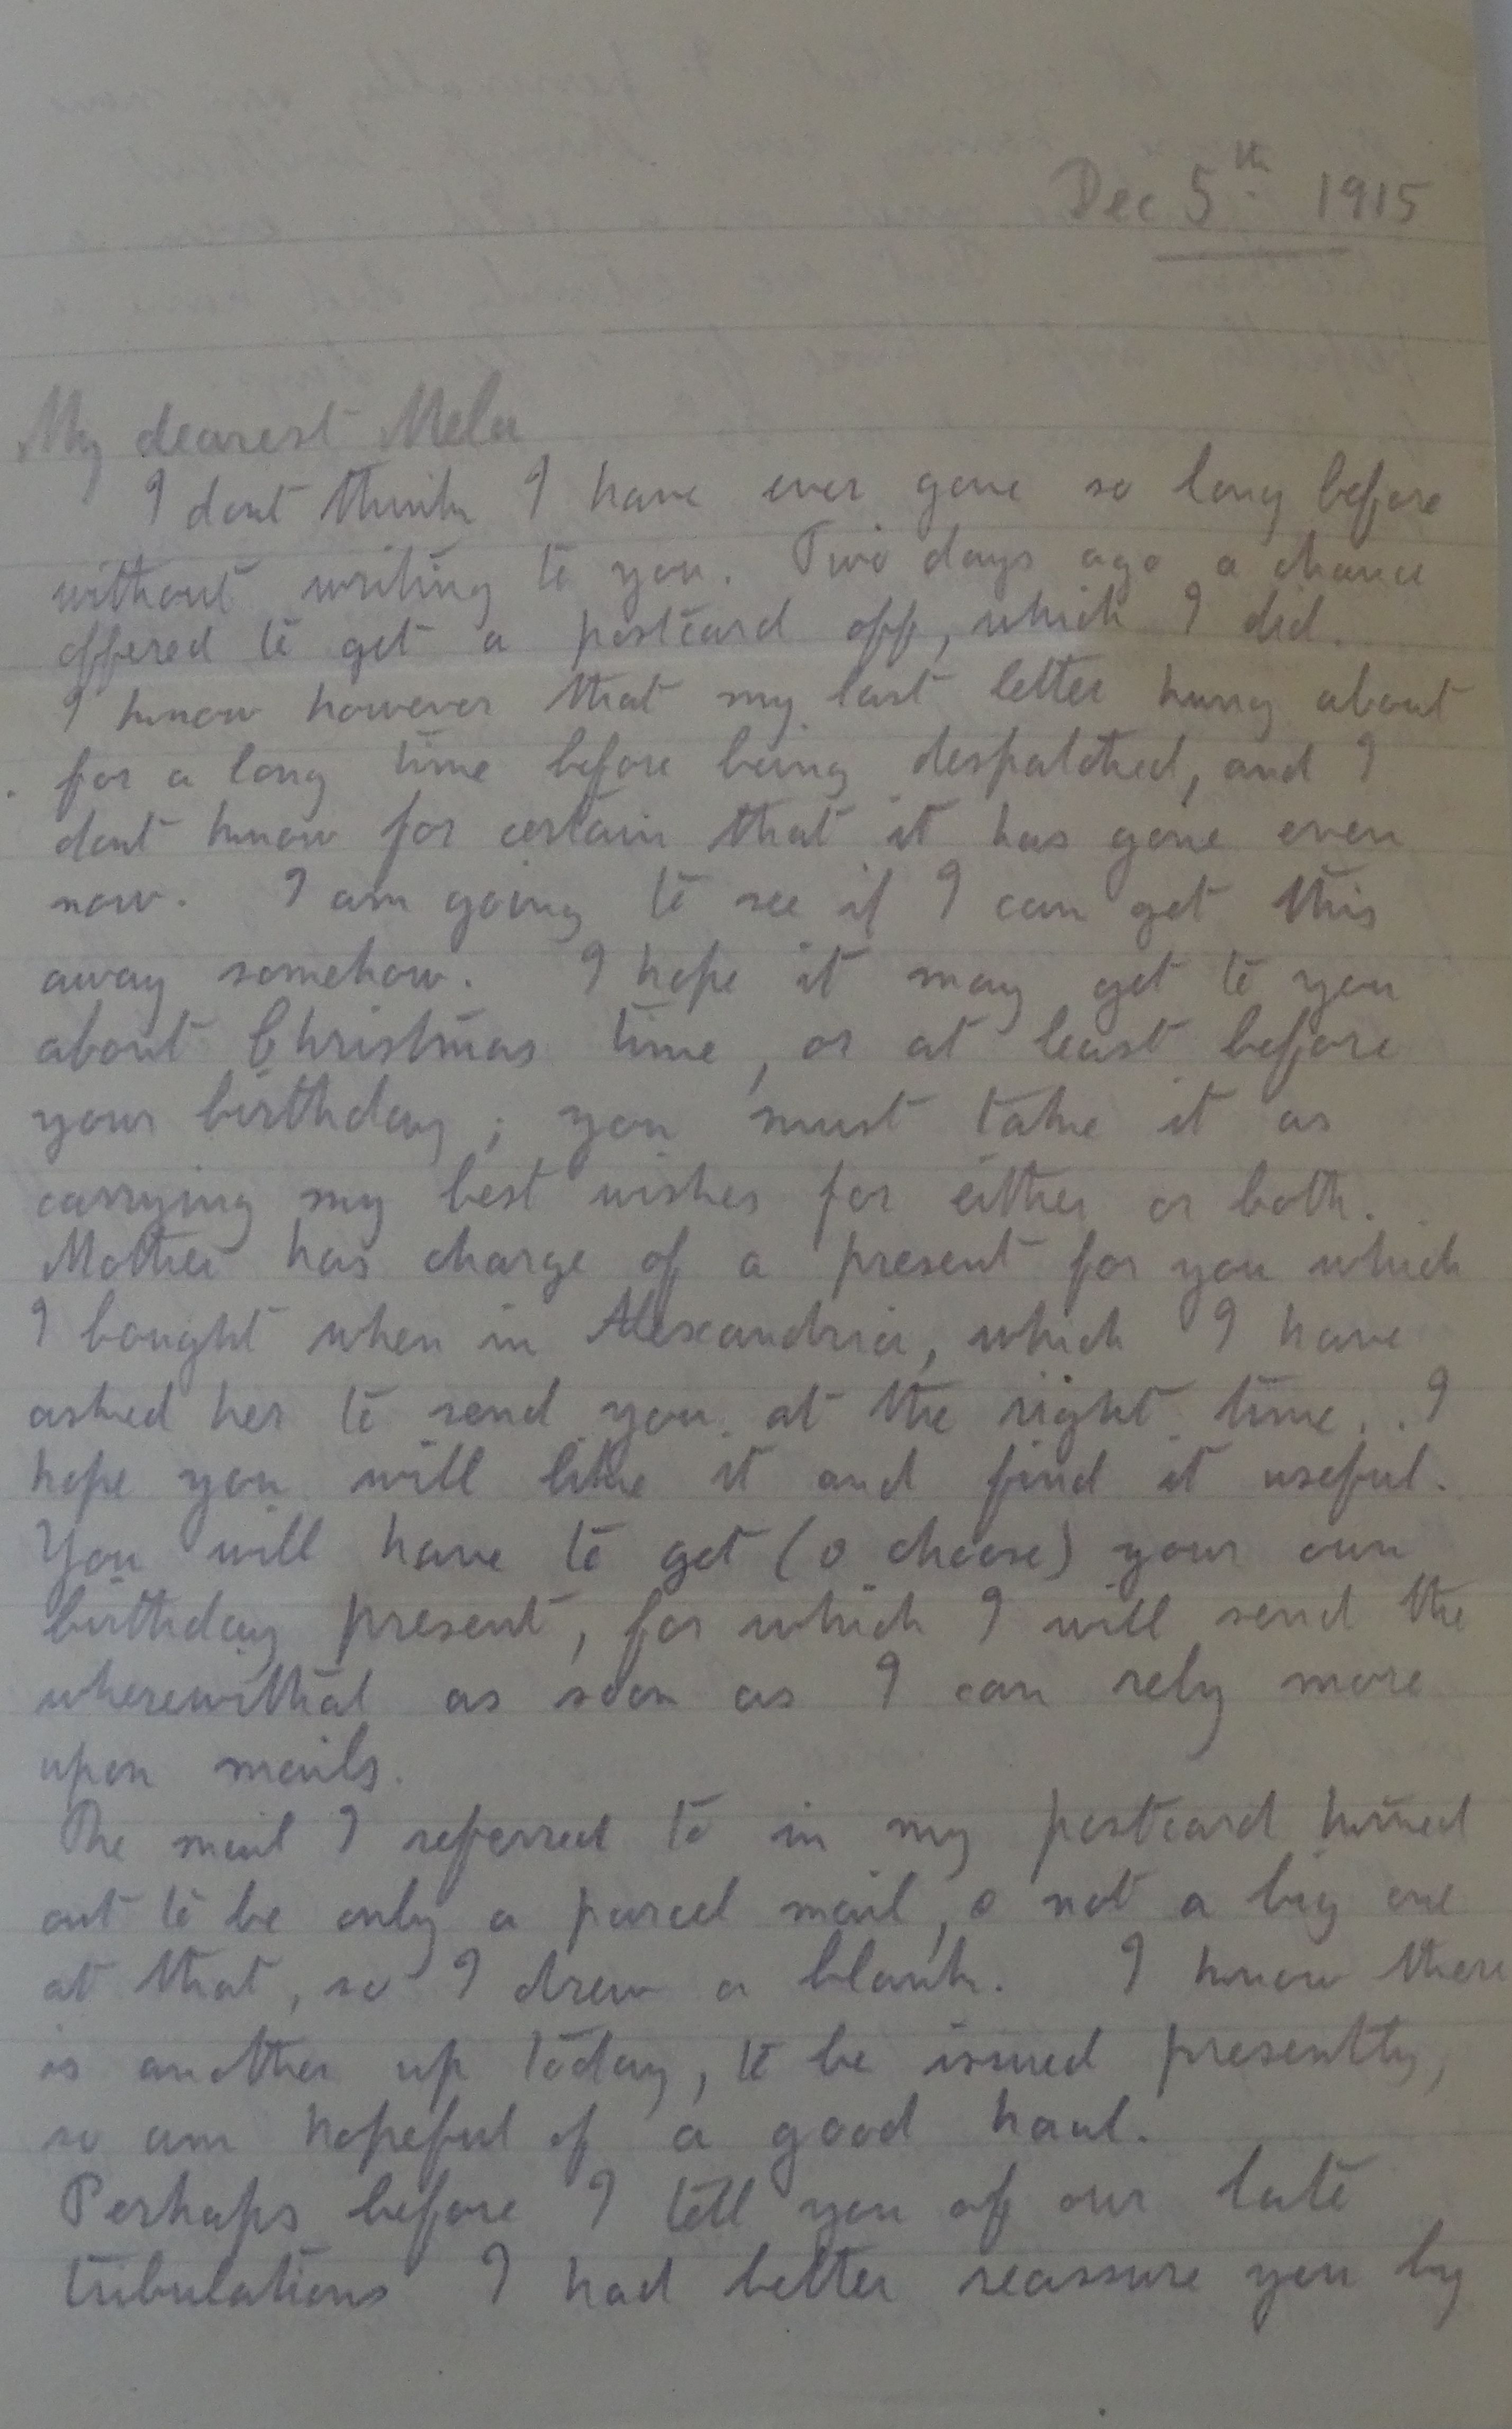 Dec 5th 1915
My dearest Mela
I dont think I have ever gone so long before
without writing to you. Two days ago a chance
offered to get a postcard off, which I did.
I know however that my last letter hung about
for a long time before being despatched, and I
dont know for certain that it has gone even
now. I am going to see if I can get this
away somehow. I hope it may get to you
about Christmas time, or at least before
your birthday; you must take it as
carrying my best wishes for either or both.
Mother has charge of a present for you which
I bought when in Alexandria, which I have
asked her to send you at the right time. I
hope you will like it and find it useful.
You will have to get (& choose) your own
birthday present, for which I will send the
wherewithal as soon as I can rely more
upon mails.
The mail I referred to in my postcard turned
out to be only a parcel mail, & not a big one
at that, so I drew a blank. I know there
is another up today, to be issued presently,
so am hopeful of a good haul.
Perhaps before I tell you of our late
tribulations I had better reassure you by